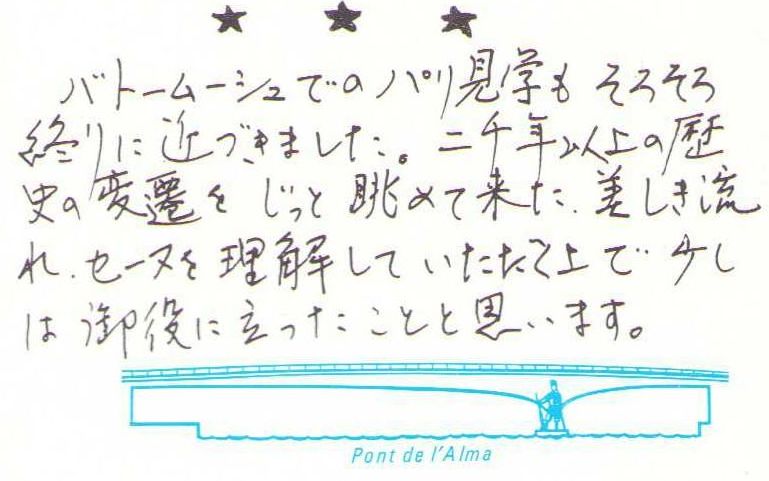 バトームーシュでのパリ見学もそろそろ
終りに近づきました。二千年以上の歴
史の変遷をじっと眺めて来た、美しき流
れ、セーヌを理解していただく上で少し
は御役に立ったことと思います。
Pont de l'Alma